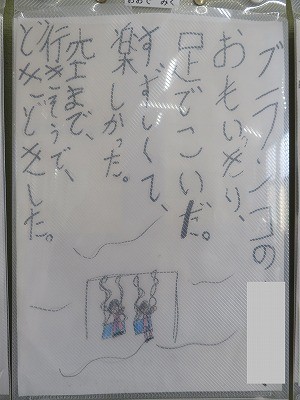 おおで みく
ブランコの
おもいっきり、
足でこいだ。
すずしくて、
楽しかった。
空まで、
行きそうで、
どきどきした。